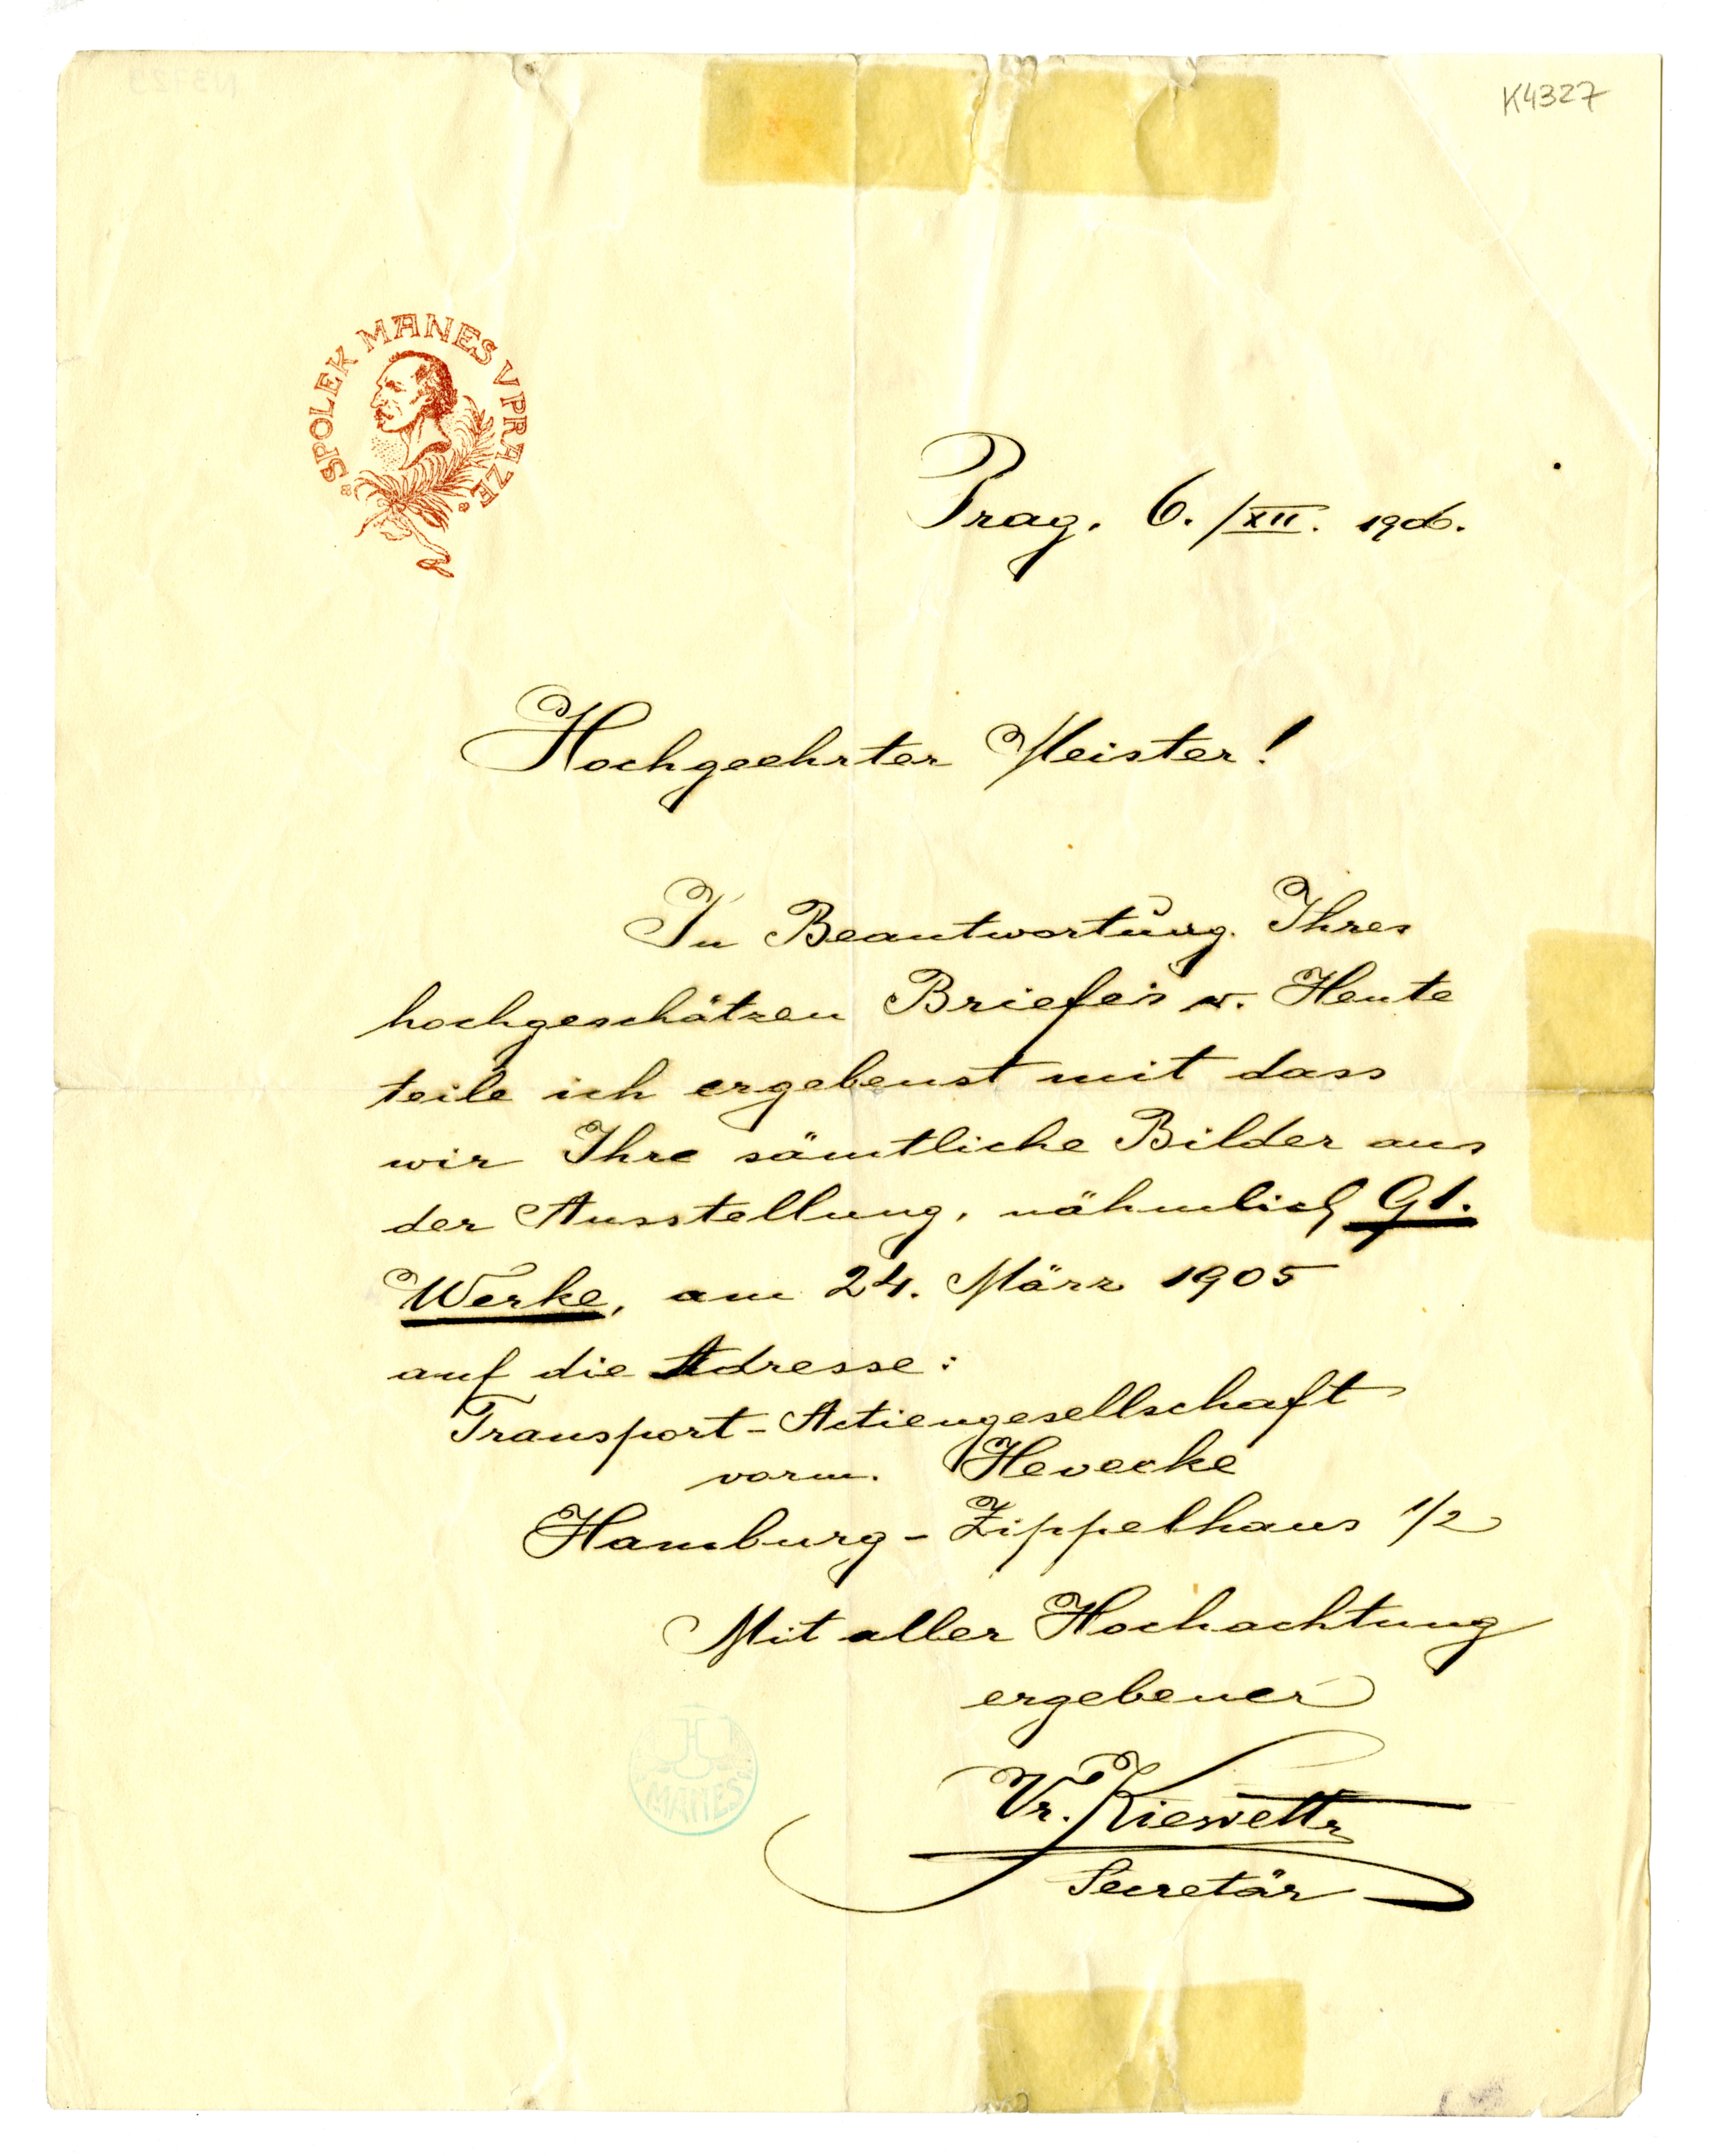 K4327
SPOLEK MANES V PRAZE
Prag. 6./XII. 1906.
Hochgeehrter Meister!
In Beantwortung Ihres
hochgeschätzen Briefes v. Heute
teile ich ergebenst mit dass
wir Ihre sämtliche Bilder aus
der Ausstellung, nähmlich 91.
Werke, am 24. März 1905
auf die Adresse:
Transport-Actiengesellschaft
vorm. Hevecke
Hamburg - Zippelhaus 1/2
Mit aller Hochachtung
ergebener
MANES
Vr. Kiesvettr
Secretär